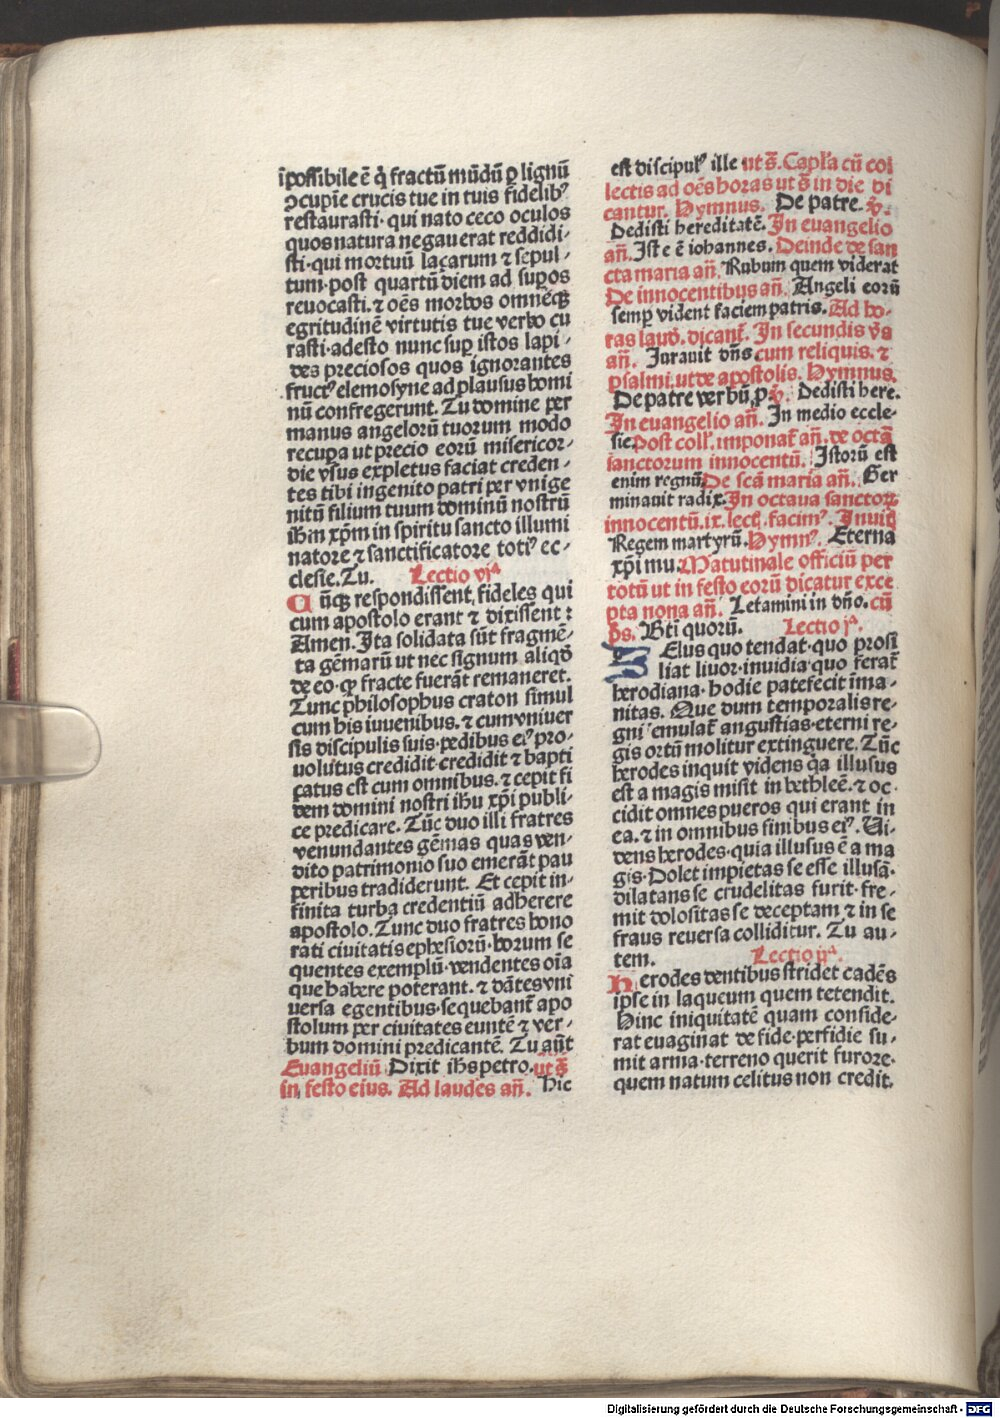 ĩpossibile ē q̇ fractū mūdū ꝑ lignū
ꝯcupie crucis tue in tuis fidelibꝰ
restaurasti· qui nato ceco oculos
quos natura negauerat reddidi-
sti· qui mortuū laçarum ⁊ sepul-
tum· post quartū diem ad suꝑos
reuocasti. ⁊ oēs morbos omnēqꝫ
egritudinē virtutis tue verbo cu
rasti· adesto nunc suꝑ istos lapi-
des preciosos quos ignorantes
fructꝰ elemosyne ad plausus homi
nū confregerunt. Tu domine per
manus angelorū tuorum modo
recuꝑa ut precio eorū misericor-
die vsus expletus faciat creden-
tes tibi ingenito patri per vnige
nitū filium tuum dominū nostrū
ihm̄ xp̄m in spiritu sancto illumi
natore ⁊ sanctificatore totiꝰ ec-
clesie. Tu. Lectio vjᵃ
Cūqꝫ respondissent, fideles qui
cum apostolo erant ⁊ dixissent:
Amen. Ita solidata sūt fragmē-
ta gēmarū ut nec signum aliqd̄
de eo· ꝙ fracte fuerāt remaneret.
Tunc philosophus craton simul
cum his iuuenibus. ⁊ cum vniuer
sis discipulis suis· pedibus eiꝰ pro-
uolutus credidit· credidit ⁊ bapti
çatus est cum omnibus. ⁊ cepit fi
dem domini nostri ihū xp̄i publi-
ce predicare. Tūc duo illi fratres
venundantes gēmas quas ven-
dito patrimonio suo emerāt pau
peribus tradiderunt. Et cepit in-
finita turba credentiū adherere
apostolo. Tunc duo fratres hono
rati ciuitatis ephesiorū· horum se
quentes exemplū· vendentes oīa
que habere poterant. ⁊ dātes vni
uersa egentibus· sequebant᷑ apo
stolum per ciuitates euntē ⁊ ver-
bum domini predicantē. Tu aūt
Euangeliū Dixit ih̄s petro. ut s̄
in festo eius. Ad laudes an̄. Hic
est discipulꝰ ille ut s̄. Capl̄a cū col
lectis ad oēs horas ut s̄ in die di
cantur. Hymnus. De patre. v̄.
Dedisti hereditatē. In euangelio
an̄. Iste ē iohannes. Deinde de san
cta maria an̄. Rubum quem viderat
De innocentibus an̄. Angeli eorū
semꝑ vident faciem patris. Ad ho-
ras laud̄. dicant᷑. In secundis v̄s
an̄. Jurauit dn̄s cum reliquis. ⁊
psalmi. ut de apostolis. Hymnus.
De patre verbū ꝓ v̄. Dedisti here.
In euangelio an̄. In medio eccle-
sie. Post coll̄. imponat᷑ an̄. de octā
sanctorum innocentū. Istorū est
enim regnū. De sc̄a maria an̄. Ger
minauit radix. In octaua sanctoꝝ
innocentū. ix. lect̄. facimꝰ. Inuit̄
Regem martyrū. Hymnꝰ. Eterna
xp̄i mu. Matutinale officiū per
totū ut in festo eorū dicatur exce
pta nona an̄. Letamini in dn̄o. cū
p̄s. Bti quorū. Lectio jᵃ.
Zelus quo tendat· quo prosi
liat liuor· inuidia quo ferat᷑
herodiana· hodie patefecit īma-
nitas. Que dum temporalis re-
gni emulat᷑ angustias· eterni re-
gis ortū molitur extinguere. Tūc
herodes inquit videns qa illusus
est a magis misit in bethleē. ⁊ oc
cidit omnes pueros qui erant in
ea. ⁊ in omnibus finibus eiꝰ. Ui-
dens herodes· quia illusus ē a ma
gis· Dolet impietas se esse illusā·
dilatans se crudelitas furit· fre-
mit dolositas se deceptam ⁊ in se
fraus reuersa colliditur. Tu au-
tem. Lectio ijᵃ.
Herodes dentibus stridet cadēs
ipse in laqueum quem tetendit.
Hinc iniquitatē quam conside-
rat euaginat de fide· perfidie su-
mit arma· terreno querit furore·
quem natum celitus non credit.
Digitalisierung gefördert durch die Deutsche Forschungsgemeinschaft - DFG